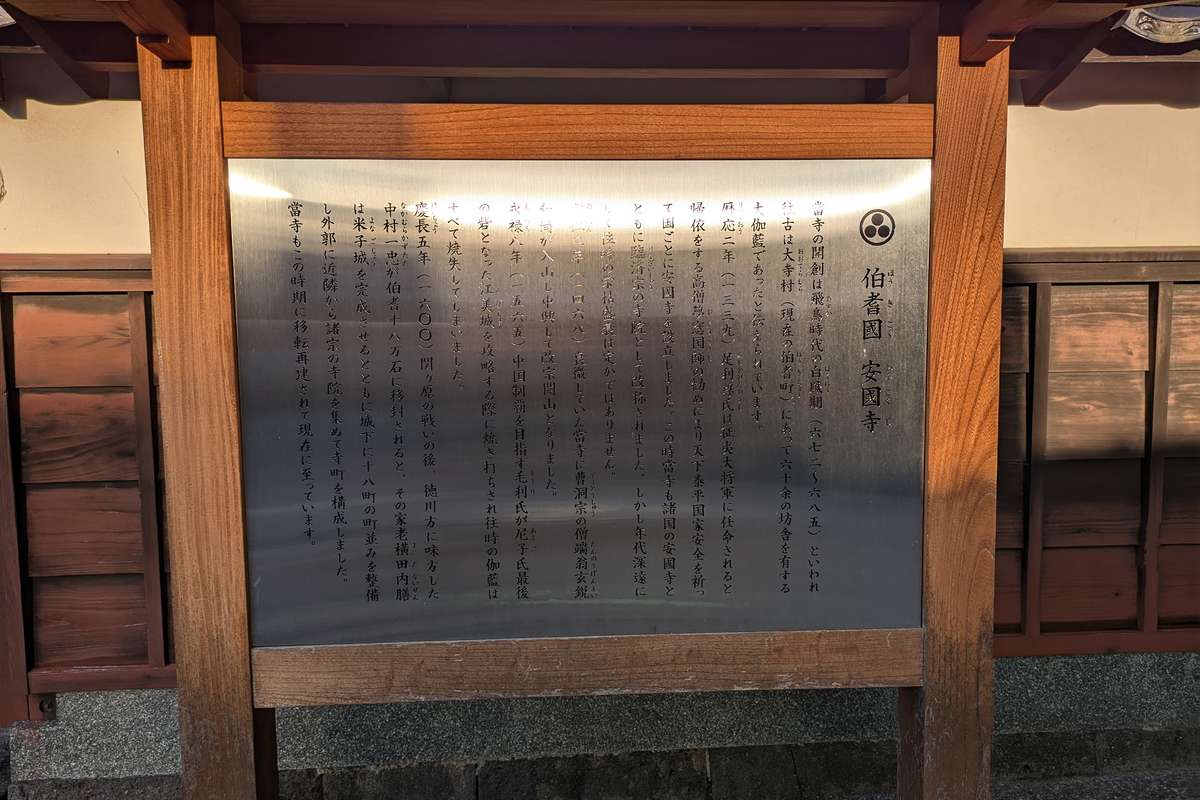 伯耆國 安國寺
當寺の開創は飛鳥時代の白鳳期（六七二～六八五）といわれ
往古は大寺村（現在の伯耆町）にあって六十余の坊舎を有する
大伽藍であったと伝えられています。
暦応二年（一三三九）足利尊氏は征夷大将軍に任命されると
帰依をする高僧夢窓国師の勧めにより天下泰平国家安全を祈っ
て国ごとに安国寺を設立しました。この時當寺も諸国の安國寺と
ともに臨済宗の寺院として改称されました。しかし年代深遠に
して往時の は定かではありません。
（一四六八）衰微していた當寺に曹洞宗の僧端翁玄鋭
和尚が入山し中興して改宗開山となりました。
永禄八年（一五六五）中国制覇を目指す毛利氏が尼子氏最後
の砦となった江美城を攻略する際に焼き打ちされ往時の伽藍は
すべて焼失してしまいました。
慶長五年（一六〇〇）関ヶ原の戦いの後、徳川方に味方した
中村一忠が伯耆十八万石に移封されると、その家老横田内膳
は米子城を完成させるとともに城下に十八町の町並みを整備
し外郭に近隣から諸宗の寺院を集めて寺町を構成しました。
當寺もこの時期に移転再建されて現在に至っています。